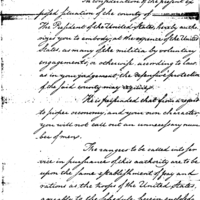 In consideration of the present ex
posed situation of the county of
The President of the United States, hereby autho
rizes you to embody, at the expence of the United
States, as many of the militia by voluntary
engagements, or otherwise according to law
as in your judgement the defensive protection
of the said county may require.
He is persuaded that from a regard
to proper economy, and your own character
you will not call out an unnecessary num
ber of men.
The rangers to be called into ser
vice in pursuance of this authority are to be
upon the same establishment of pay and
rations as the troops of the United States,
agreeable to the schedule herein enclosed